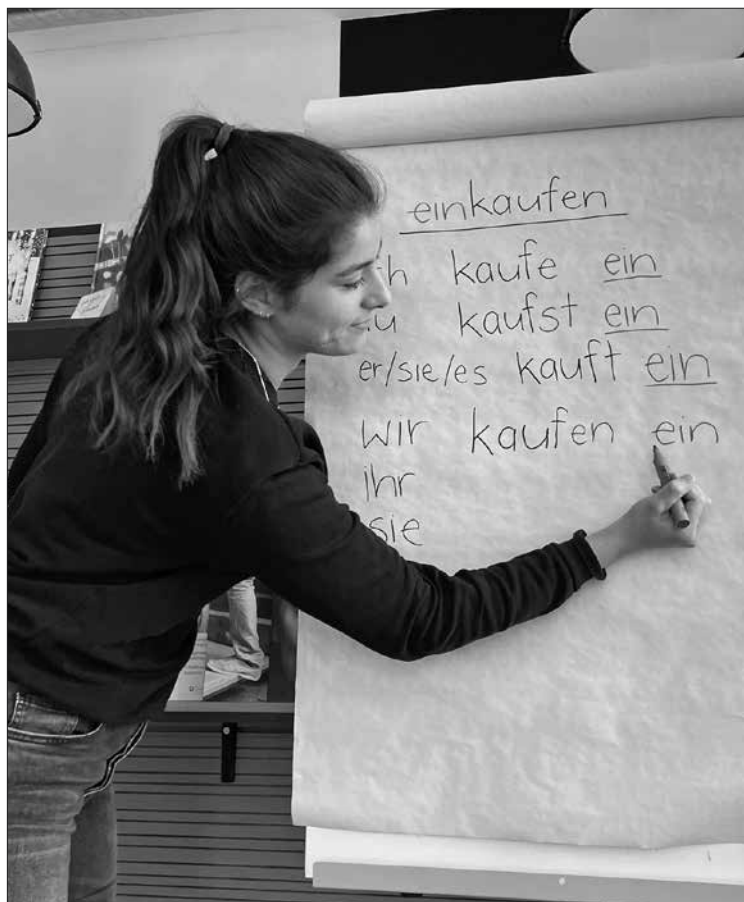 einkaufen
kaufe ein
kaufst ein
er/sie/es kauft ein
wir kaufen ein
ihr
sie